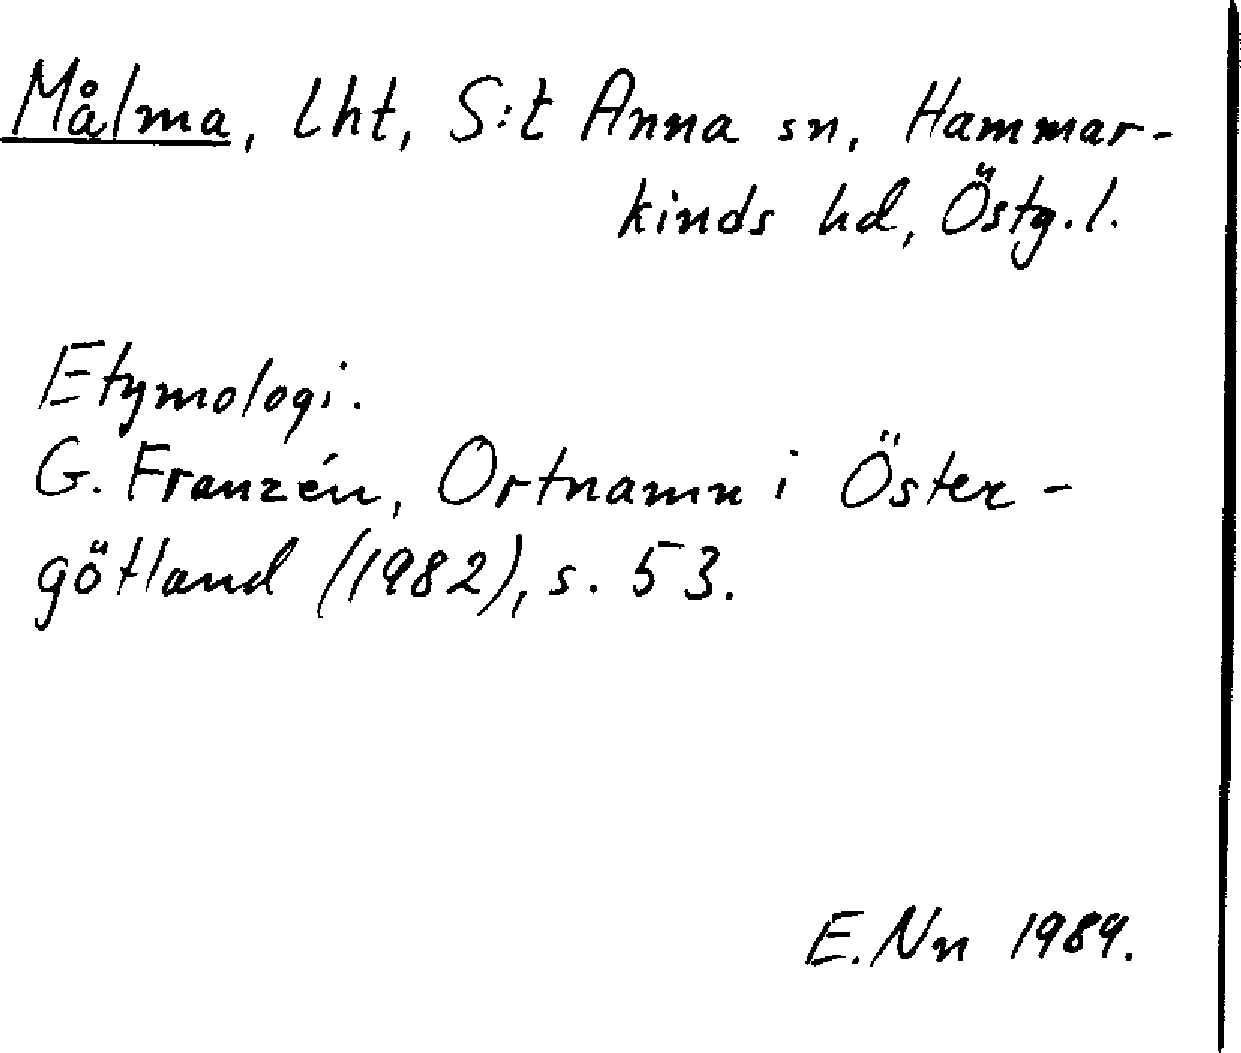 Målma, Lht, S:t Anna sn, Hammar-
kinds hd, Östg.l.
Etymologi.
G. Franzén, Ortnamn i Öster-
götland (1982), s. 53.
E. Nn 1989.